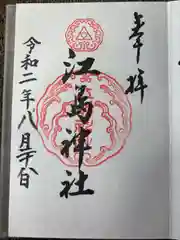 奉拝
江島神社
令和二年八月廿日